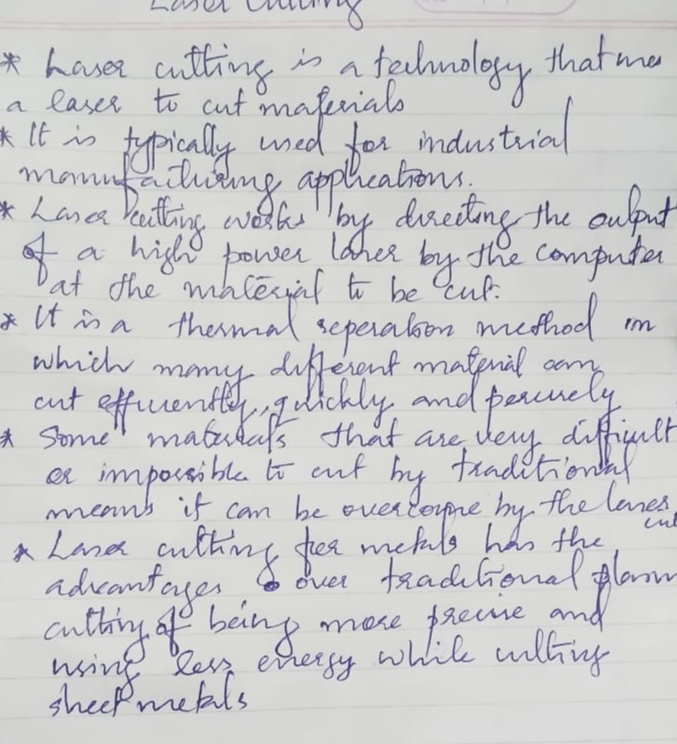 Laser Cutting
* Laser cutting is a technology that uses
a laser to cut materials
* It is typically used for industrial
manufacturing applications.
* Laser cutting works by directing the output
of a high power laser by the computer
at the material to be cut.
* It is a thermal seperation method in
which many different material can
cut efficiently, quickly and percisely
* Some materials that are very difficult
or impossible to cut by traditional
means it can be overcome by the laser
cut
* Laser cutting for metals has the
advantages over traditional plasm
cutting of being more precise and
using less energy while cutting
sheet metals